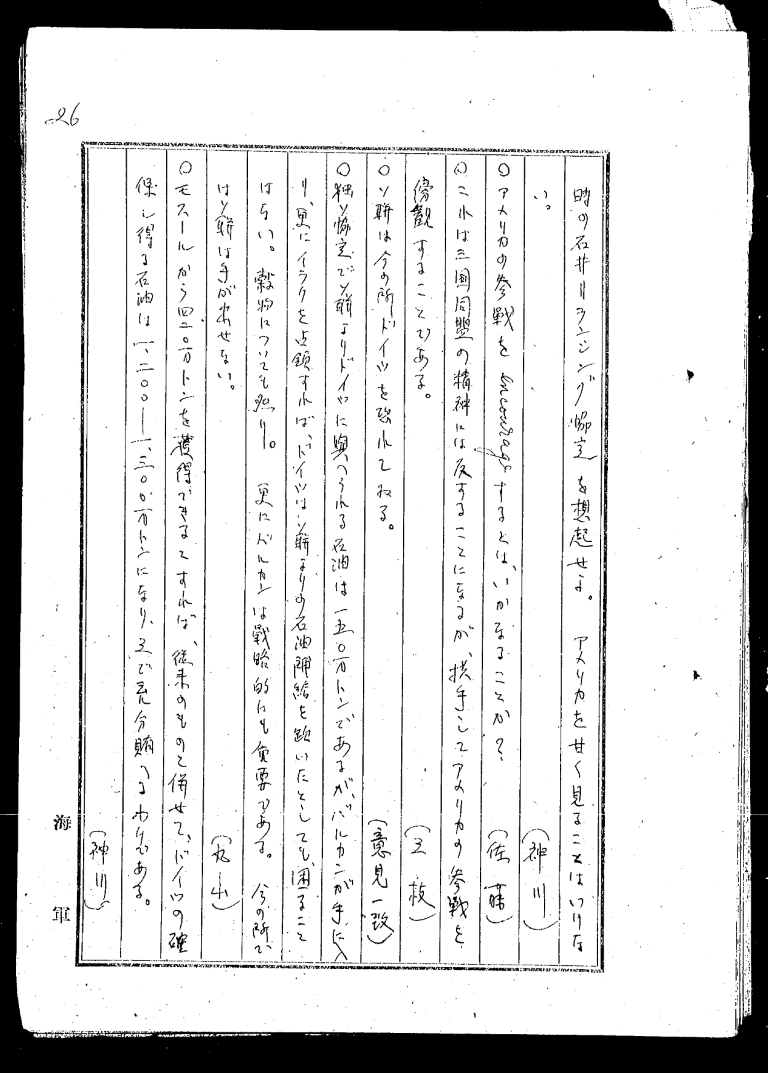 26
時の石井リランシング協定を想起せよ。 アメリカを甘く見ることはいけな
い。 (神川)
○アメリカの参戦を encourage するとは、いかなることか? (佐藤)
○これは三国同盟の精神には反することになるが、拱手してアメリカの参戦を
傍観することである。 (三枝)
○ソ聯は今の所ドイツを恐れてゐる。 (意見一致)
○独ソ協定でソ聯よりドイツに與へられる石油は一五〇万トンであるが、バルカンが手に入
り、更にイラクを占領すれば、ドイツはソ聯よりの石油補給を欠いたとしても、困ること
はない。穀物についても然り。 更にバルカンは戦略的にも重要である。 今の所で
はソ聯は手が出せない。 (丸山)
○モスールから四二〇万トンを獲得できるとすれば、従来のものと併せて、ドイツの確
保し得る石油は一、二〇〇―一、三〇〇万トンになり、之で充分賄へるわけである。
(神川)
海軍